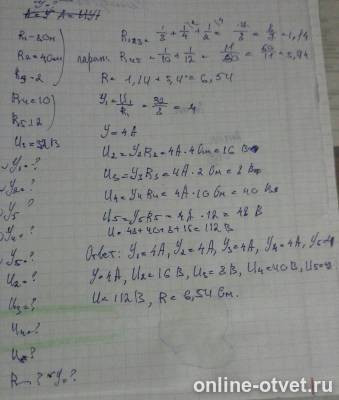 R₁=8 Ом
R₂=4 Ом
R₃=2
R₄=10
R₅=12
U₁=32В
У₁=?
У₂=?
У₅
У₄=?
У₅=?
U₂=?
U₃=?
U₄=?
U₅=?
R-? У-?
R₁₂₃=1/8+1/4+1/2= =1,14
парал. R₄₅=1/10+1/12=11/60=60/11=5,4
R=1,14+5,4=6,54
У₁=U₁/R₁=32/8=4
У=4А
U₂=У₂R₂=4А·4Ом=16 В
U₃=У₃R₃=4А·2Ом=8 В
U₄=У₄R₄=4А·10Ом=40 В
U₅=У₅R₅=4А·12=48 В
U=48+40+8+16=112 В
Ответ: У₁=4А, У₂=4А, У₃=4А, У₄=4А, У₅=4
У=4А, U₂=16 В, U₃=8В, U₄=40В, U₅=48
U=112 В, R=6,54 Ом.
online-otvet.ru